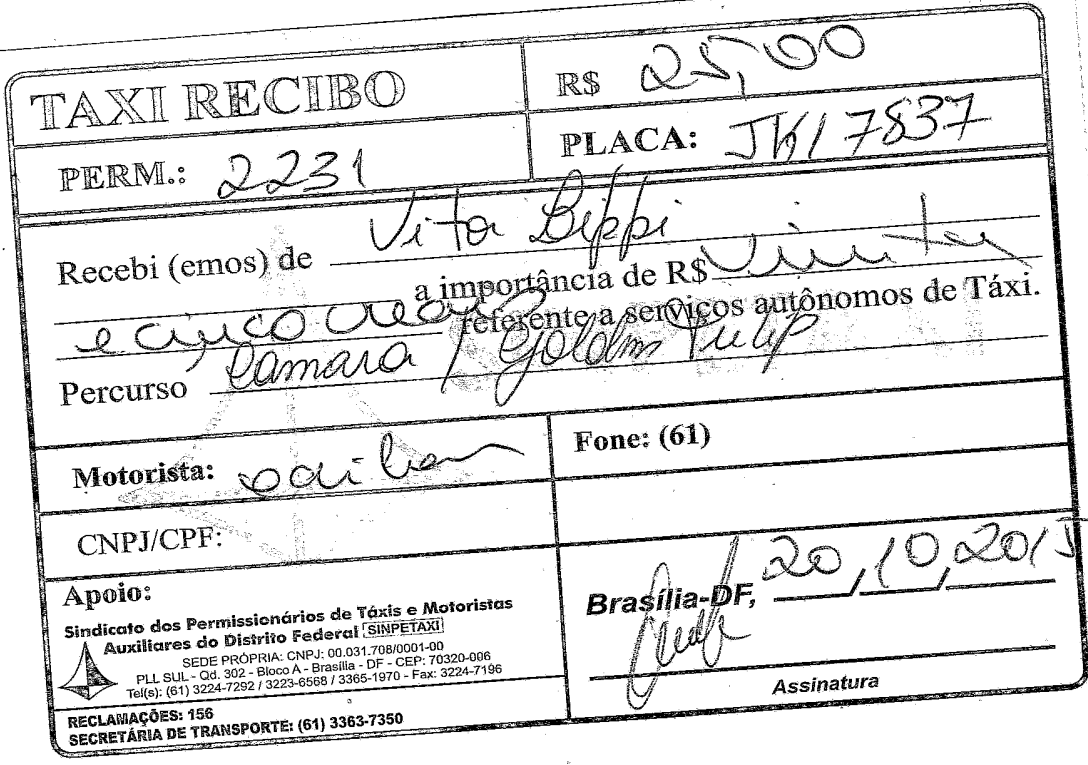 TAXI RECIBO
R$ 25,00
PERM.: 2231
PLACA: JKI 7837
Recebi (emos) de Vitor Lippi
a importância de R$ Vinte
e cinco reais referente a serviços autônomos de Táxi.
Percurso Camara / Goldem Tulip
Motorista:
Fone: (61)
CNPJ/CPF:
Apoio:
Sindicato dos Permissionários de Táxis e Motoristas
Auxiliares do Distrito Federal SINPETAXI
SEDE PRÓPRIA: CNPJ: 00.031.708/0001-00
PLL SUL - Qd. 302 - Bloco A - Brasília - DF - CEP: 70320-006
Tel(s): (61) 3224-7292 / 3223-6568 / 3365-1970 - Fax: 3224-7196
RECLAMAÇÕES: 156
SECRETÁRIA DE TRANSPORTE: (61) 3363-7350
Brasília-DF, 20/10/2015
Assinatura